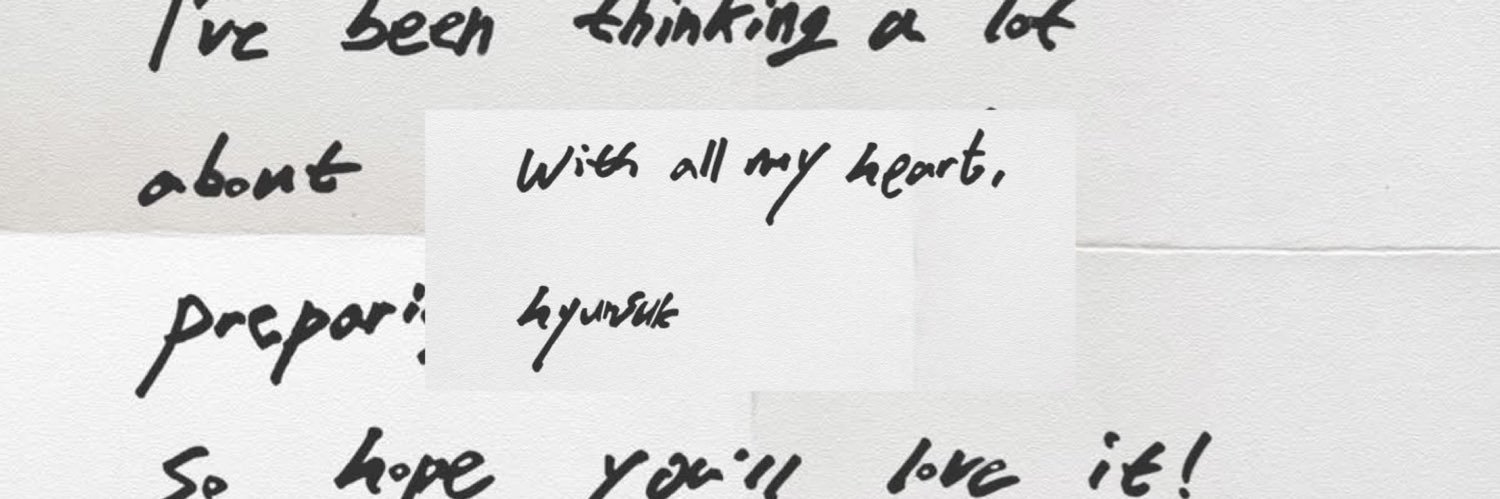 I've been thinking a lot
about
With all my heart,
prepari
hyunsuk
so hope you'll love it!